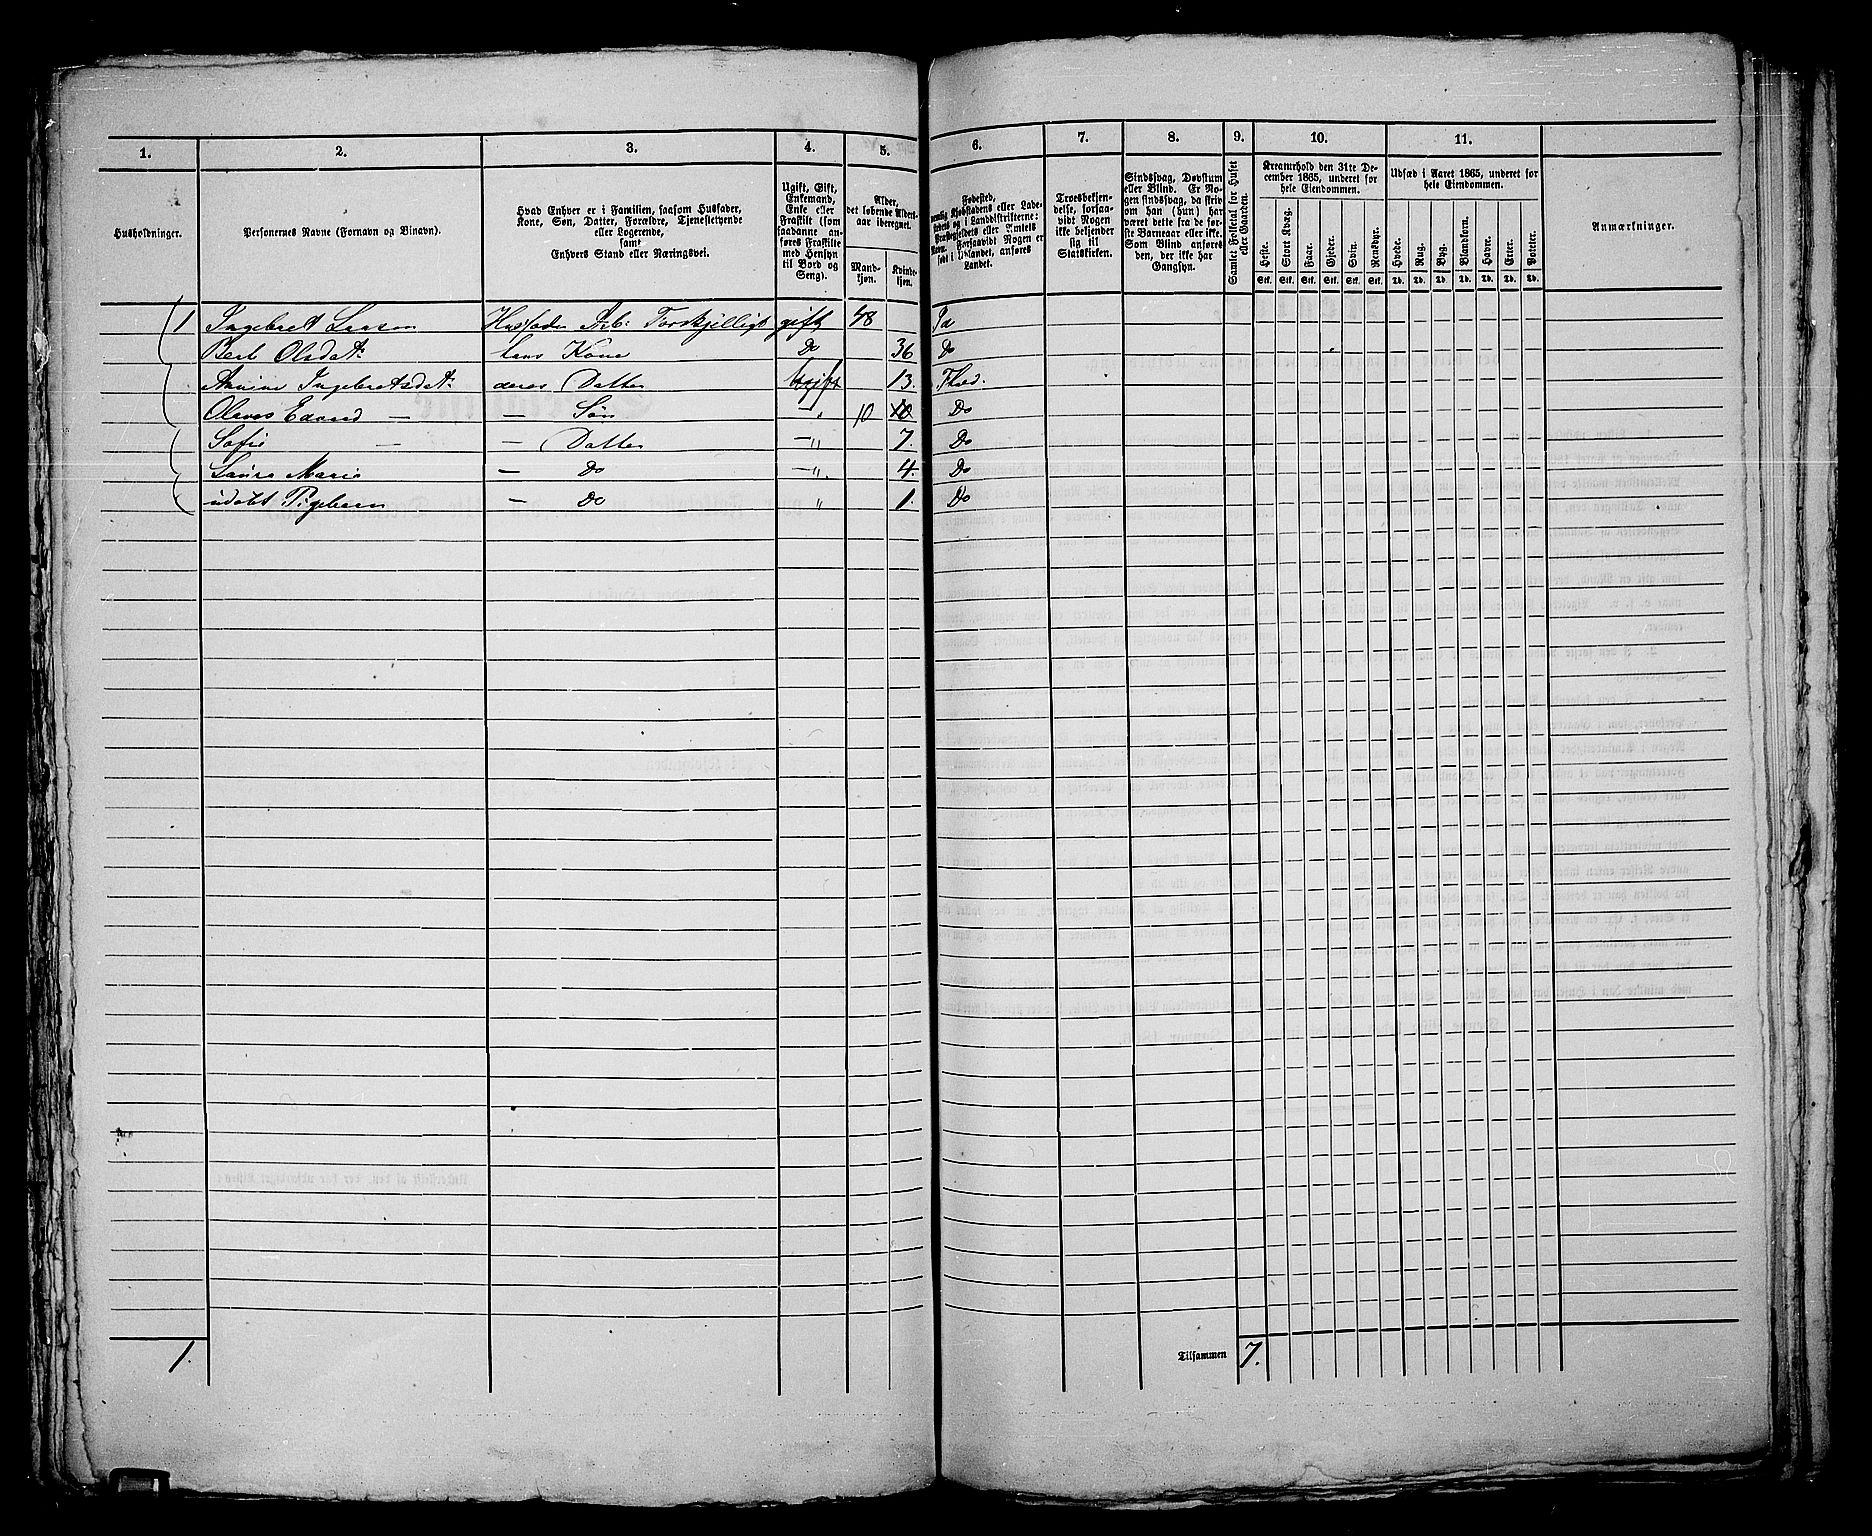 1. 2. 3. 4. 5. 6. 7. 8. 9. 10. 11.
Husholdninger.
Personernes Navne (Fornavn og Binavn).
Hvad Enhver er i Familien, saasom Husfader,
Kone, Søn, Datter, Forældre, Tjenestetyende
eller Logerende,
samt
Enhvers Stand eller Næringsvei.
Ugift, Gift,
Enkemand,
Enke eller
Fraskilt (som
saadanne an-
føres Fraskilte
med Hensyn
til Bord og
Seng).
Alder,
det løbende Alders-
aar iberegnet.
Mand-
kjøn.
Kvinde-
kjøn.
Fødested,
Forsaavidt Nogen er
født i Udlandet, anføres
Landet.
Troesbekjen-
delse, forsaa-
vidt Nogen
ikke bekjender
sig til
Statskirken.
Sindssvag, Døvstum
eller Blind. Er No-
gen sindssvag, da skriv
om han (hun) har
været dette fra de før-
ste Barneaar eller ikke.
Som Blind anføres
den, der ikke har
Gangsyn.
Samlet Folketal for Huset
eller Gaarden.
Kreaturhold den 31te De-
cember 1865, underet for
hele Eiendommen.
Heste. Stort Kvæg. Faar. Gjeder. Svin. Rensdyr.
Stk. Stk. Stk. Stk. Stk. Stk.
Udsæd i Aaret 1865, underet for
hele Eiendommen.
Hvede. Rug. Byg. Blandkorn. Havre. Erter. Poteter.
Td. Td. Td. Td. Td. Td. Td.
Anmærkninger.
1 Ingebret Larsen Husfader Arb: Forskjelligt gift 48
Bert Olsdat: hans Kone Do 36 Do
Ingebretsdat: deres Datter Ugift 13.
Edvard — — Søn —„ 10 10 Do
Sofie — — Datter —„ 7. Do
Laura Marie — Do —„ 4. Do
udøbt Pigebarn — Do „ 1. Do
1. Tilsammen 7.